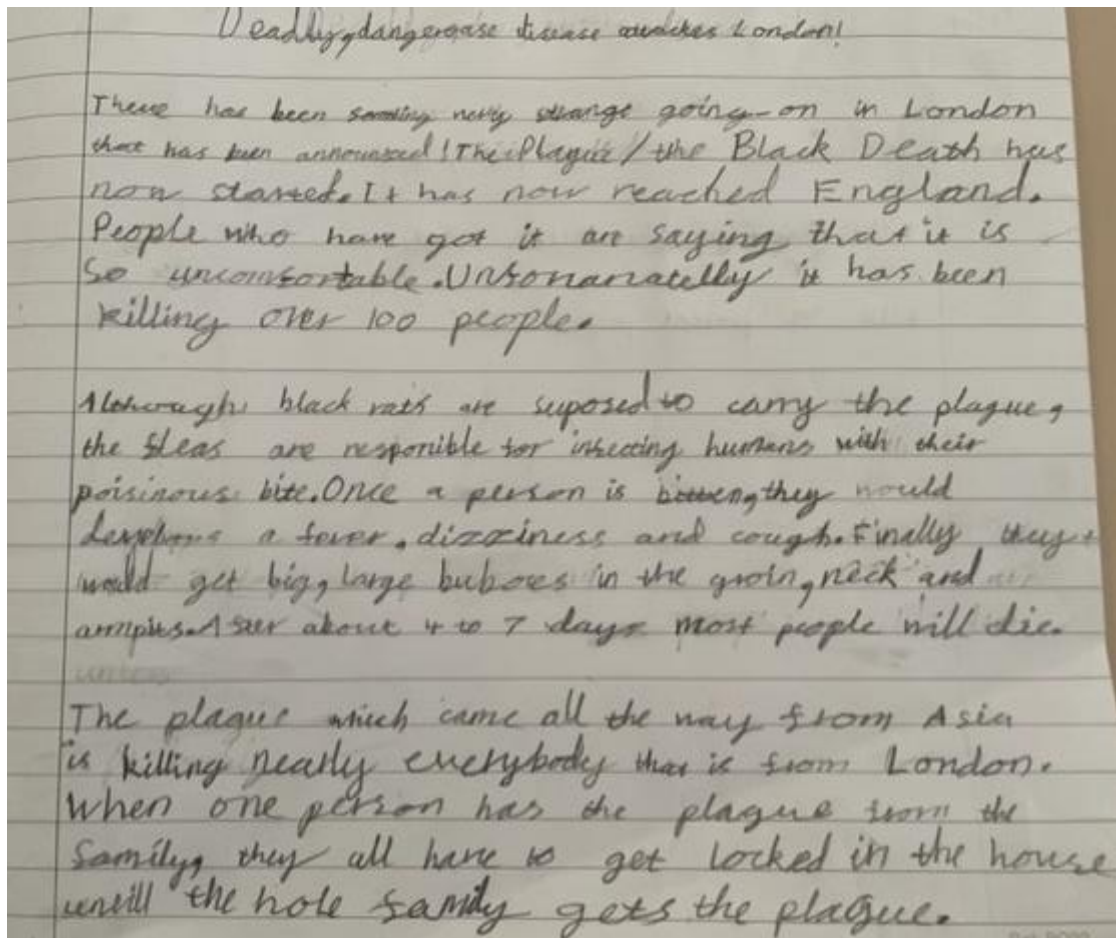 Deadly, dangerouse disease attackes London!
There has been something very strange going-on in London
that has been announced! The Plague/the Black Death has
now started. It has now reached England.
People who have got it are saying that it is
so uncomfortable. Unfortunatelly it has been
killing over 100 people.
Although black rats are suposed to carry the plague,
the fleas are responible for infecting humans with their
poisinous bite. Once a person is bitten, they would
a fever, dizziness and cough. Finally they
would get big, large buboes in the groin, neck and
armpits. After about 4 to 7 days most people will die.
The plague which came all the way from Asia
is killing nearly everybody that is from London.
When one person has the plague from the
family, they all have to get locked in the house
untill the hole family gets the plague.